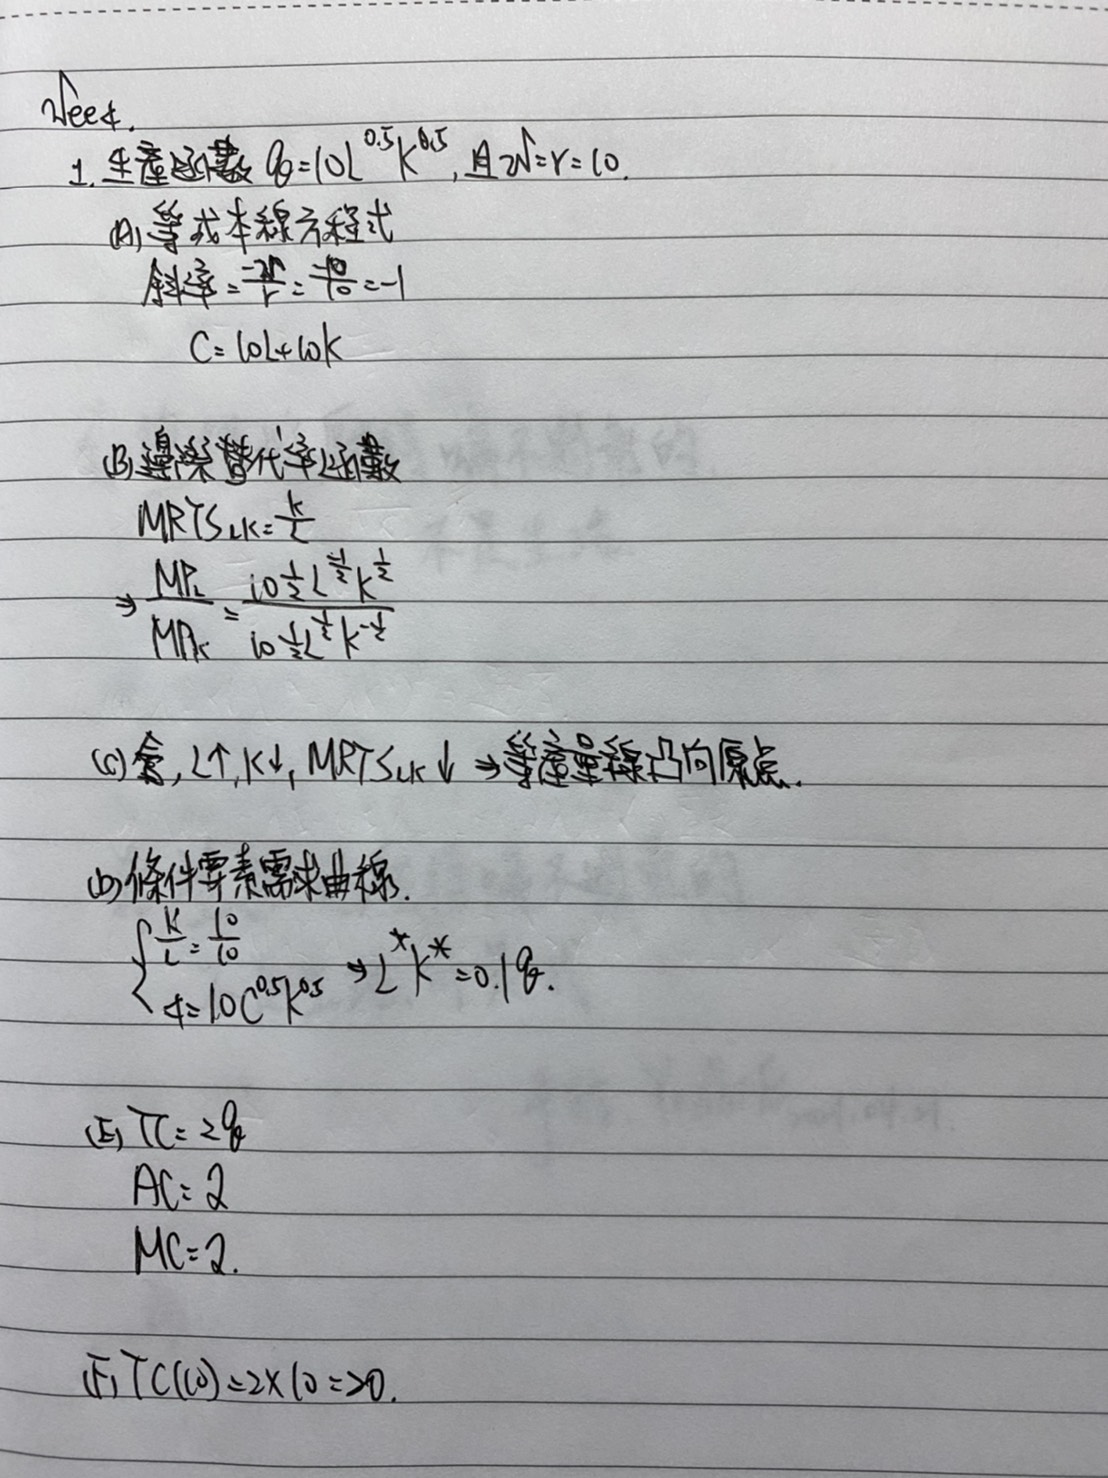 Week4.
1. 生產函數 q=10L^0.5K^0.5, 且w=r=10.
(A) 等成本線方程式
斜率=-w/r=-10/10=-1
C=10L+10K
(B) 邊際替代率函數
MRTS_LK=K/L
⇒ MP_L/MP_K = 10 1/2 L^-1/2 K^1/2 / 10 1/2 L^1/2 K^-1/2
(C) 會, L↑, K↓, MRTS_LK↓ ⇒等產量線凸向原点.
(D) 條件要素需求曲線.
{ K/L=10/10
q=10L^0.5K^0.5 ⇒ L*K*=0.1q.
(E) TC=2q
AC=2
MC=2.
(F) TC(10)=2×10=20.